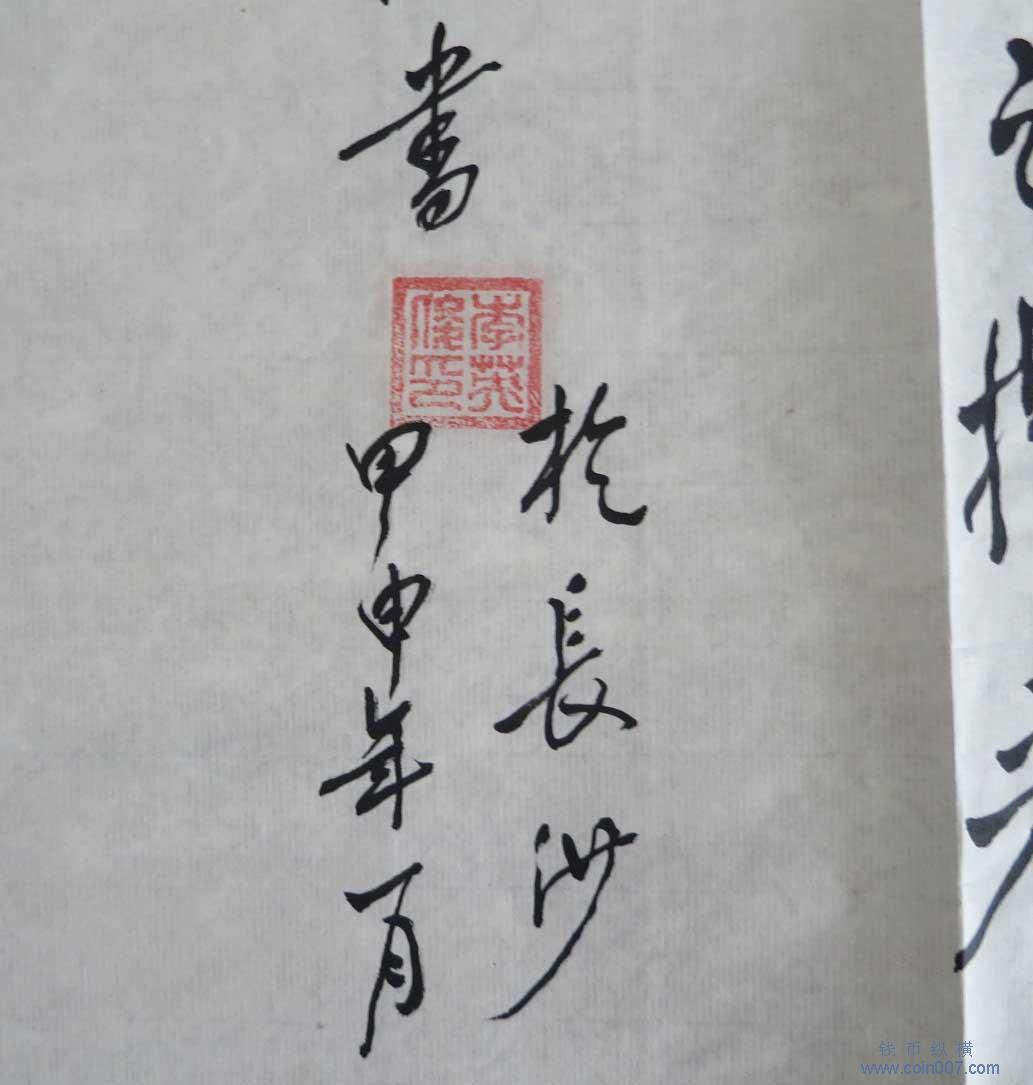 於長沙
書
李英
俊印
甲申年一月
钱币纵横
www.coin007.com